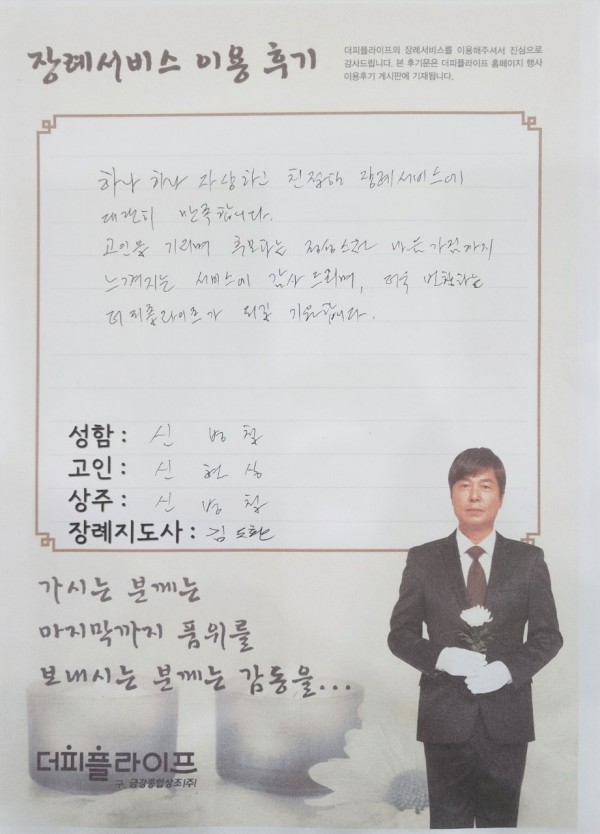 장례서비스 이용 후기
더피플라이프의 장례서비스를 이용해주셔서 진심으로
감사드립니다. 본 후기문은 더피플라이프 홈페이지 행사
이용후기 게시판에 기재됩니다.
하나 하나 자상하고 친절한 장례서비스에
대단히 만족합니다.
고인을 기리며 추모하는 정성스런 마음가짐까지
느껴지는 서비스에 감사드리며, 더욱 번창하는
더피플라이프가 되길 기원합니다.
성함 : 신 범 철
고인 : 신 현
상주 : 신 범 철
장례지도사 : 김도환
가시는 분께는
마지막까지 품위를
보내시는 분께는 감동을...
더피플라이프
구. 금강종합상조(주)